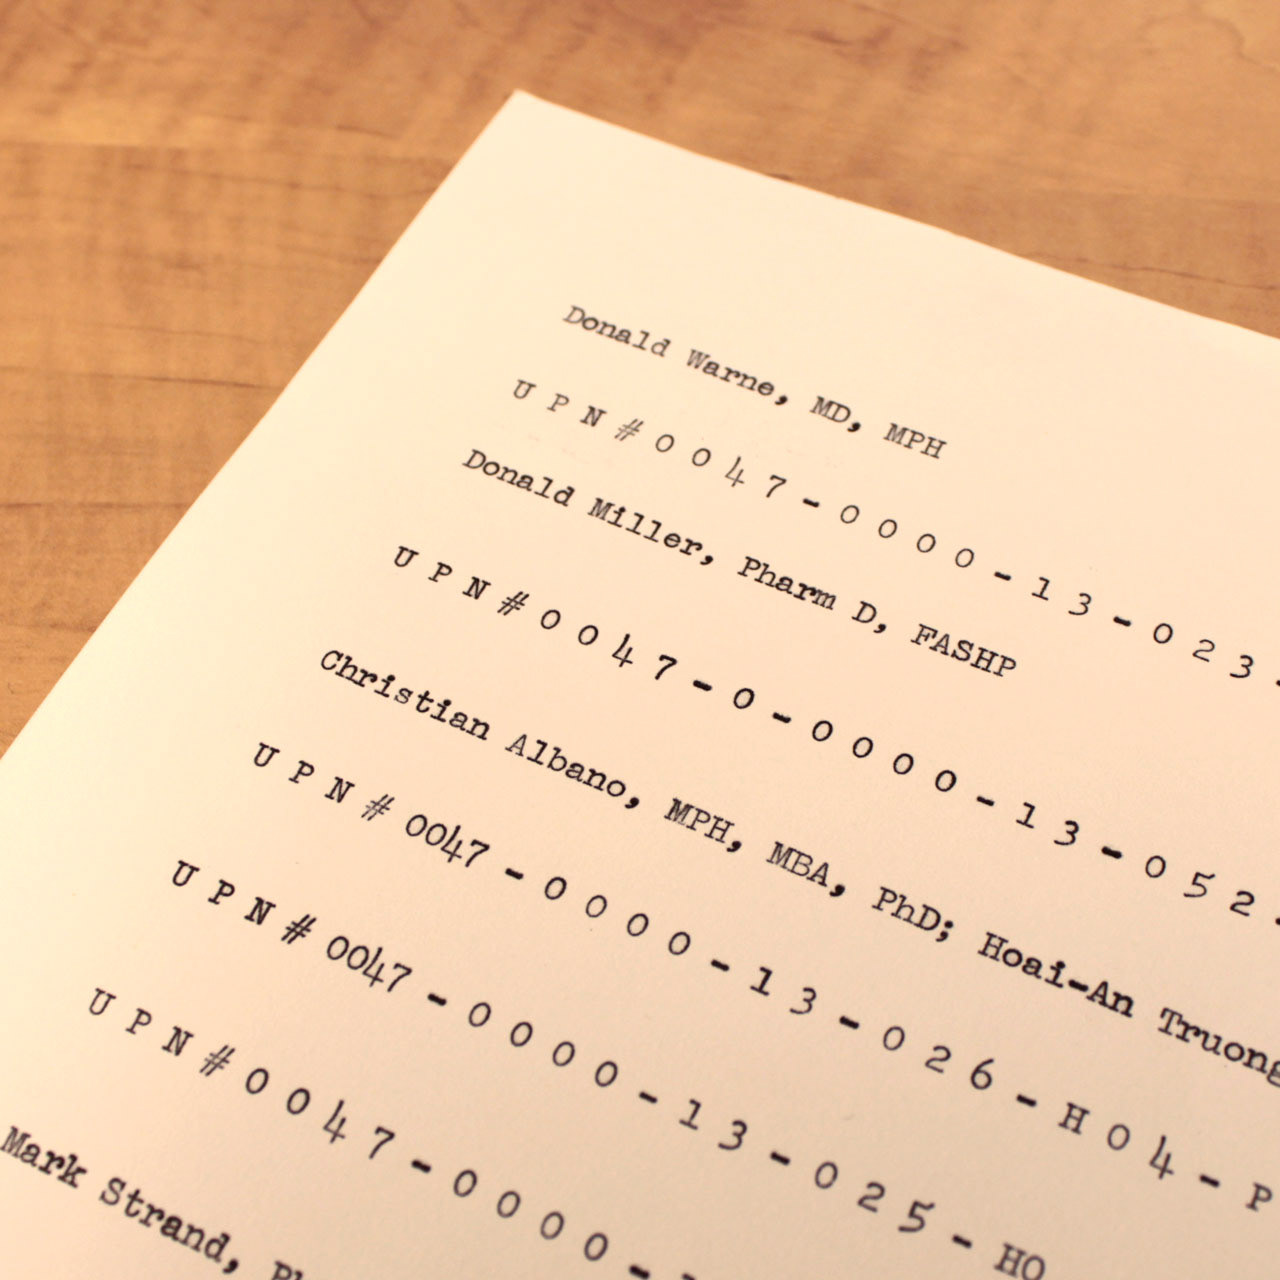 Donald Warne, MD, MPH
U P N # 0 0 4 7 - 0 0 0 0 - 1 3 - 0 2 3 -
Donald Miller, Pharm D, FASHP
U P N # 0 0 4 7 - 0 - 0 0 0 0 - 1 3 - 0 5 2 -
Christian Albano, MPH, MBA, PhD; Hoai-An Truong
U P N # 0047 - 0 0 0 0 - 1 3 - 0 2 6 - H 0 4 - P
U P N # 0047 - 0 0 0 0 - 1 3 - 0 2 5 - H0
U P N # 0 0 4 7 - 0 0 0 0 -
Mark Strand,